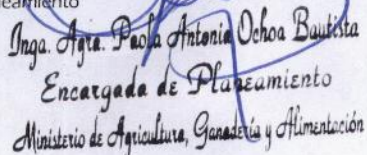 eamiento
Inga. Agra. Paola Antonia Ochoa Bautista
Encargada de Planeamiento
Ministerio de Agricultura, Ganadería y Alimentación